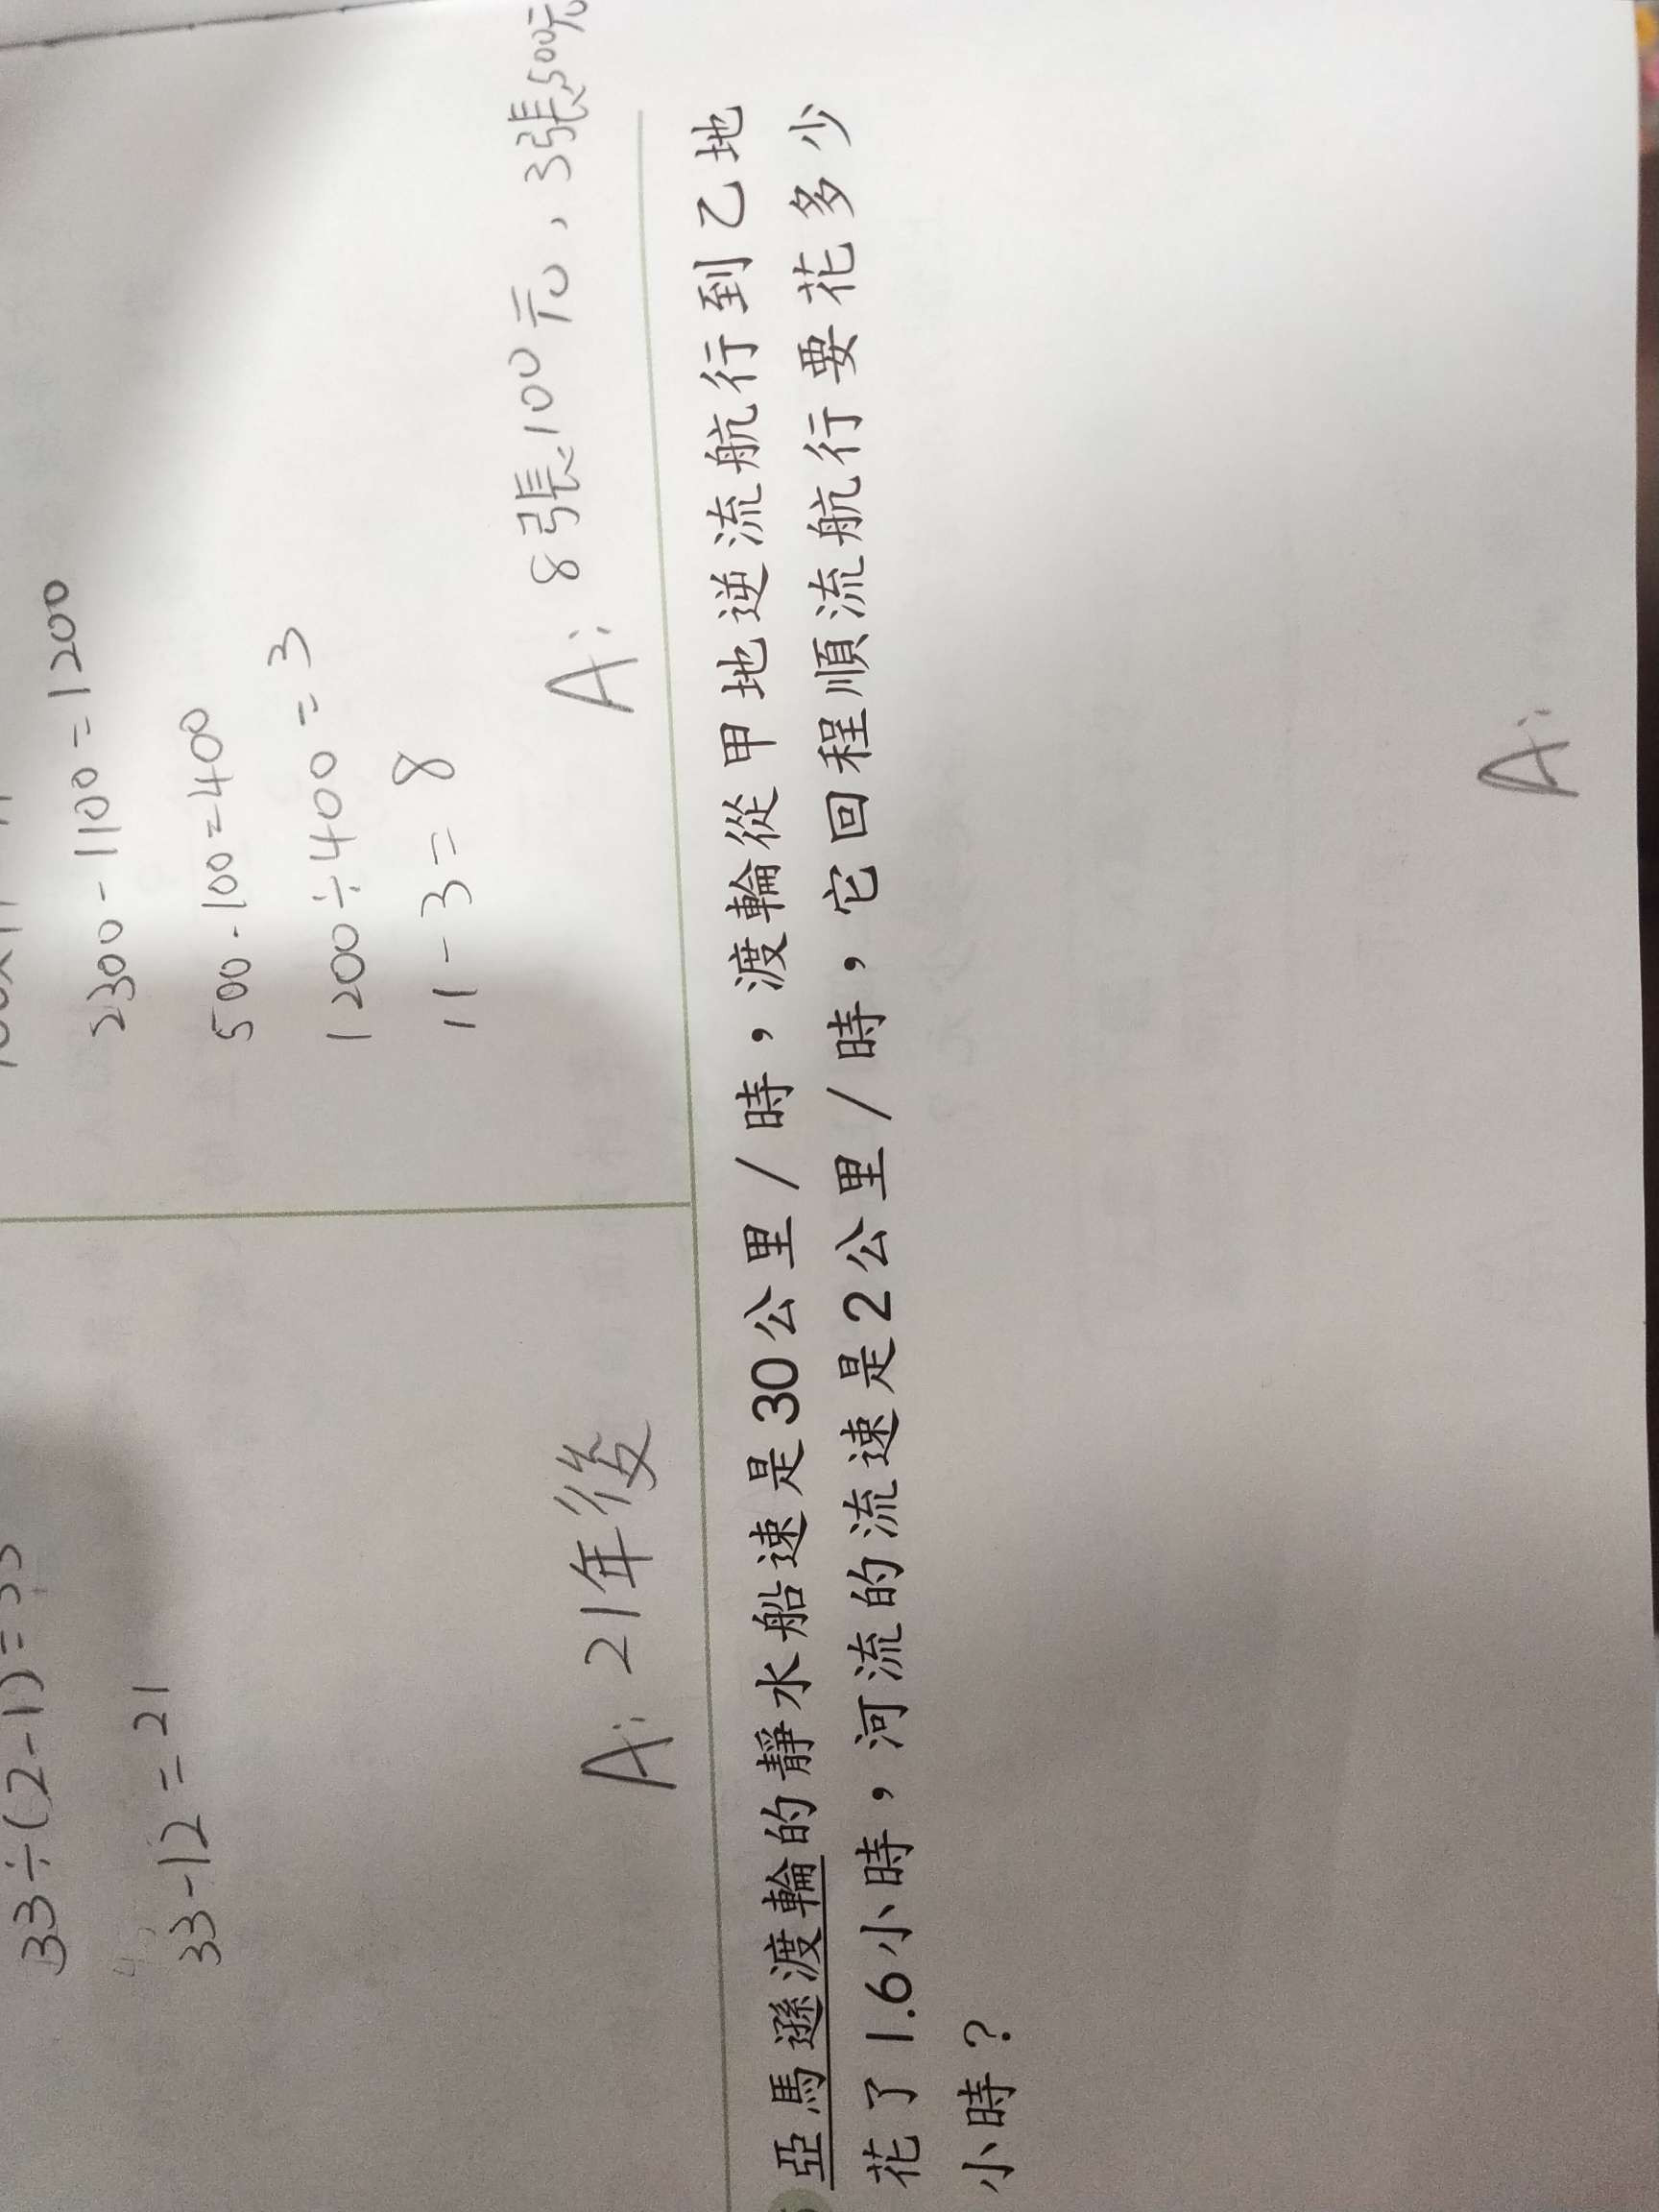 33÷(2-1)=33
33-12=21
A: 21年後
2300-1100=1200
500-100=400
1200÷400=3
11-3=8
A: 8張100元、3張500元
亞馬遜渡輪的靜水船速是30公里/時，渡輪從甲地逆流航行到乙地
花了1.6小時，河流的流速是2公里/時，它回程順流航行要花多少
小時？
A: